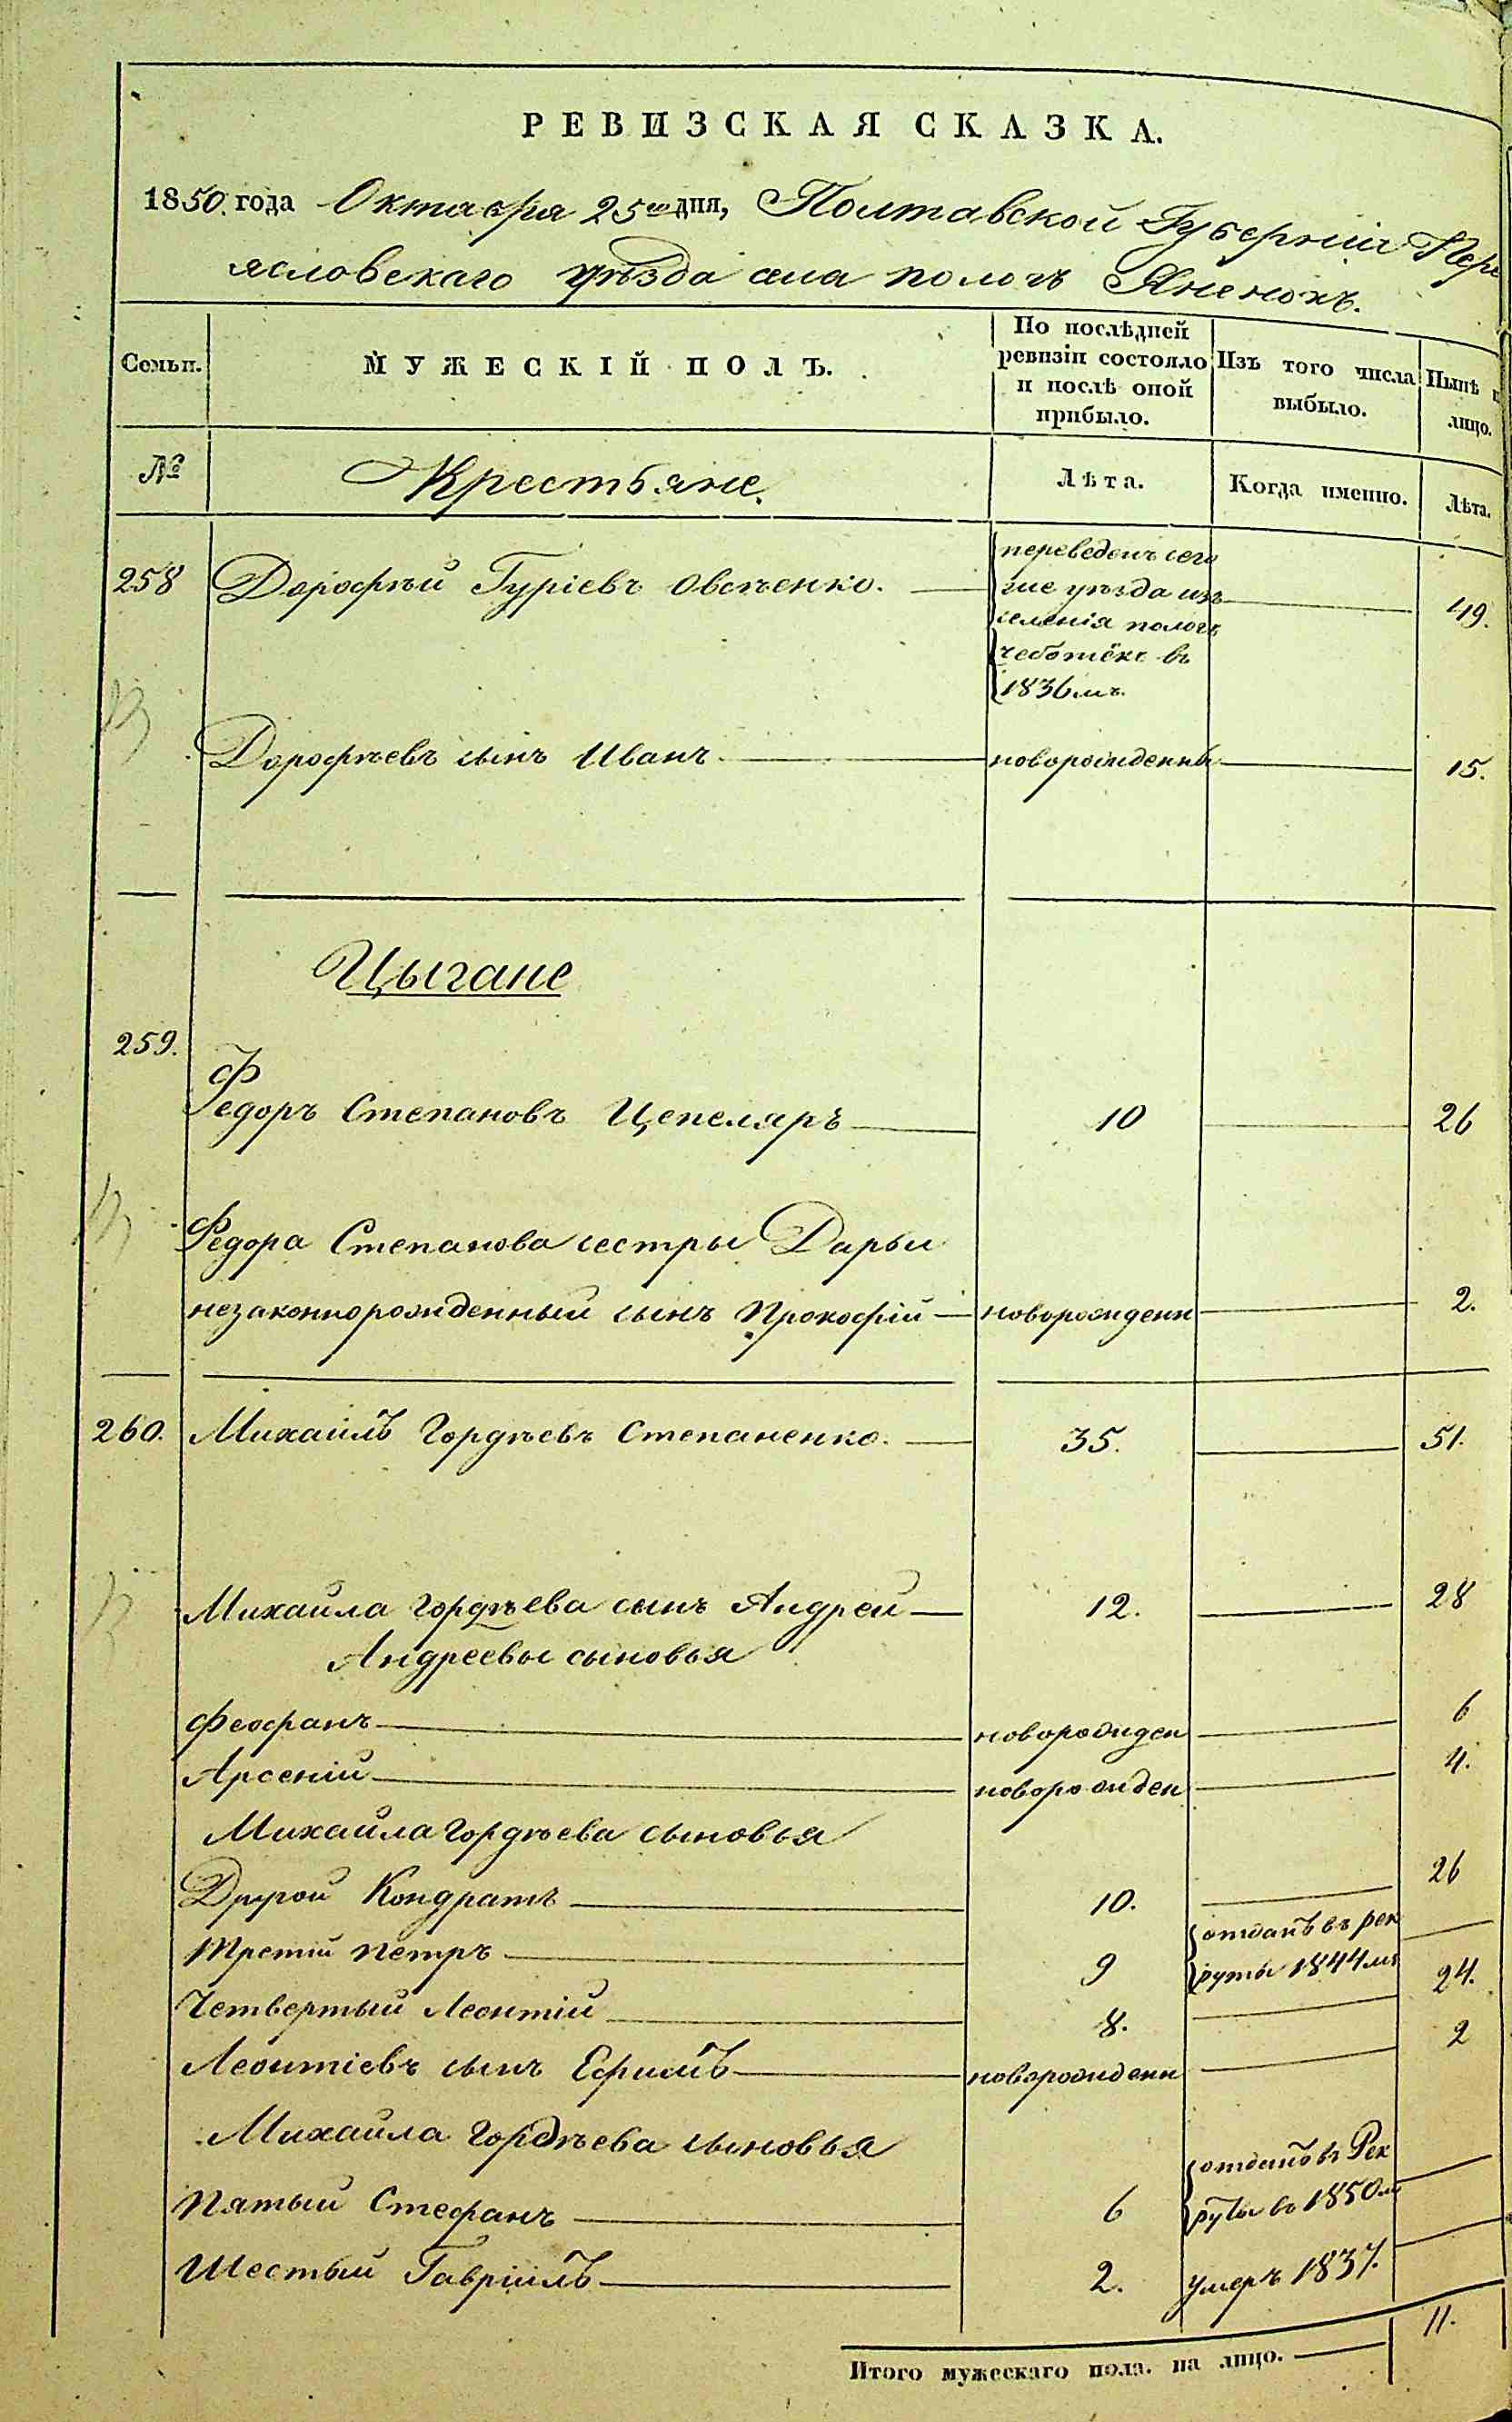 РЕВИЗСКАЯ СКАЗКА.
1850. года Октября 25го дня, Полтавской Губерніи Пере
ясловскаго уѣзда села пологъ Яненокъ.
Семьи.
МУЖЕСКІЙ ПОЛЪ.
По послѣдней
ревизіи состояло
и послѣ оной
прибыло.
Изъ того числа
выбыло.
Нынѣ
лицо.
№
Крестьяне.
Лѣта.
Когда именно.
Лѣта.
258 Дорофѣй Гуріевъ Овсѣенко. 49.
переведенъ сего
же уѣзда изъ
селенія пологъ
чеботёкъ въ
1836мъ.
Дорофѣевъ сынъ Иванъ новорожденны 15.
Цыгане
259.
Федоръ Степановъ Цепеляръ 10 26
Федора Степанова сестры Дарьи
незаконнорожденный сынъ Прокофій новорожденн 2.
260. Михаилъ Гордѣевъ Степаненко. 35. 51.
Михаила Гордѣева сынъ Андрей 12. 28
Андреевы сыновья
Феофанъ новорожден 6
Арсеній новорожден 4.
Михаила Гордѣева сыновья
Другой Кондратъ 10. 26
Третій Петръ 9 отданъ въ рек
руты 1844мъ
Четвертый Леонтій 8. 24.
Леонтіевъ сынъ Ефимъ новорожденн 2
Михаила Гордѣева сыновья
Пятый Стефанъ 6 отданъ въ Рек
руты въ 1850м
Шестый Гавріилъ 2. умеръ 1837.
Итого мужескаго пола. на лицо. 11.